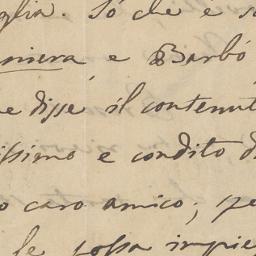 glia. Só che e s
niera e Barbó
e disse il contenut
issimo e condito d
o caro amico, pe
le possa impie